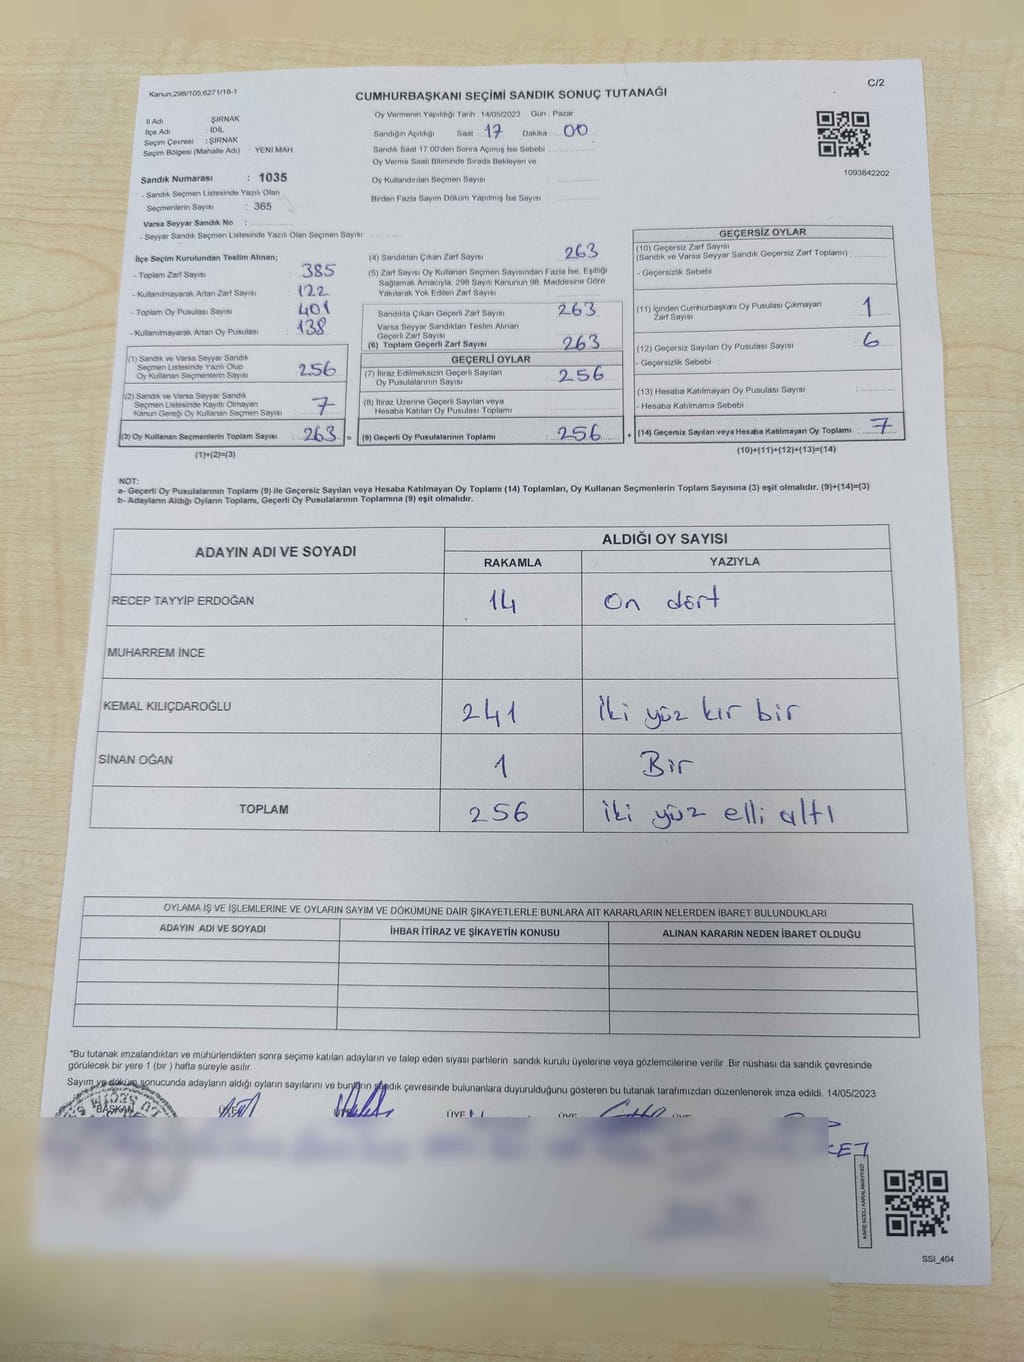 Kanun:298/105,6271/18-1
C/2
CUMHURBAŞKANI SEÇİMİ SANDIK SONUÇ TUTANAĞI
İl Adı : ŞIRNAK
İlçe Adı : İDİL
Seçim Çevresi : ŞIRNAK
Seçim Bölgesi (Mahalle Adı) : YENİ MAH.
Sandık Numarası : 1035
- Sandık Seçmen Listesinde Yazılı Olan
Seçmenlerin Sayısı : 365
Varsa Seyyar Sandık No :
- Seyyar Sandık Seçmen Listesinde Yazılı Olan Seçmen Sayısı:
Oy Vermenin Yapıldığı Tarih : 14/05/2023 Gün : Pazar
Sandığın Açıldığı Saat : 17 Dakika : 00
Sandık Saat 17.00'den Sonra Açılmış İse Sebebi :
Oy Verme Saati Bitiminde Sırada Bekleyen ve
Oy Kullandırılan Seçmen Sayısı
Birden Fazla Sayım Döküm Yapılmış İse Sayısı :
1093842202
İlçe Seçim Kurulundan Teslim Alınan;
- Toplam Zarf Sayısı : 385
- Kullanılmayarak Artan Zarf Sayısı : 122
- Toplam Oy Pusulası Sayısı : 401
- Kullanılmayarak Artan Oy Pusulası : 138
(1) Sandık ve Varsa Seyyar Sandık
Seçmen Listesinde Yazılı Olup
Oy Kullanan Seçmenlerin Sayısı : 256
(2) Sandık ve Varsa Seyyar Sandık
Seçmen Listesinde Kayıtlı Olmayan
Kanun Gereği Oy Kullanan Seçmen Sayısı : 7
(3) Oy Kullanan Seçmenlerin Toplam Sayısı : 263 =
(1)+(2)=(3)
(4) Sandıktan Çıkan Zarf Sayısı : 263
(5) Zarf Sayısı Oy Kullanan Seçmen Sayısından Fazla İse, Eşitliği
Sağlamak Amacıyla, 298 Sayılı Kanunun 98. Maddesine Göre
Yakılarak Yok Edilen Zarf Sayısı :
Sandıkta Çıkan Geçerli Zarf Sayısı : 263
Varsa Seyyar Sandıktan Teslim Alınan
Geçerli Zarf Sayısı :
(6) Toplam Geçerli Zarf Sayısı : 263
GEÇERLİ OYLAR
(7) İtiraz Edilmeksizin Geçerli Sayılan
Oy Pusulalarının Sayısı : 256
(8) İtiraz Üzerine Geçerli Sayılan veya
Hesaba Katılan Oy Pusulası Toplamı :
(9) Geçerli Oy Pusulalarının Toplamı : 256 +
GEÇERSİZ OYLAR
(10) Geçersiz Zarf Sayısı
(Sandık ve Varsa Seyyar Sandık Geçersiz Zarf Toplamı) :
- Geçersizlik Sebebi :
(11) İçinden Cumhurbaşkanı Oy Pusulası Çıkmayan
Zarf Sayısı : 1
(12) Geçersiz Sayılan Oy Pusulası Sayısı : 6
- Geçersizlik Sebebi :
(13) Hesaba Katılmayan Oy Pusulası Sayısı :
- Hesaba Katılmama Sebebi :
(14) Geçersiz Sayılan veya Hesaba Katılmayan Oy Toplamı : 7
(10)+(11)+(12)+(13)=(14)
NOT:
a- Geçerli Oy Pusulalarının Toplamı (9) ile Geçersiz Sayılan veya Hesaba Katılmayan Oy Toplamı (14) Toplamları, Oy Kullanan Seçmenlerin Toplam Sayısına (3) eşit olmalıdır. (9)+(14)=(3)
b- Adayların Aldığı Oyların Toplamı, Geçerli Oy Pusulalarının Toplamına (9) eşit olmalıdır.
ADAYIN ADI VE SOYADI
ALDIĞI OY SAYISI
RAKAMLA YAZIYLA
RECEP TAYYİP ERDOĞAN 14 On dört
MUHARREM İNCE
KEMAL KILIÇDAROĞLU 241 İki yüz kır bir
SİNAN OĞAN 1 Bir
TOPLAM 256 iki yüz elli altı
OYLAMA İŞ VE İŞLEMLERİNE VE OYLARIN SAYIM VE DÖKÜMÜNE DAİR ŞİKAYETLERLE BUNLARA AİT KARARLARIN NELERDEN İBARET BULUNDUKLARI
ADAYIN ADI VE SOYADI İHBAR İTİRAZ VE ŞİKAYETİN KONUSU ALINAN KARARIN NEDEN İBARET OLDUĞU
*Bu tutanak imzalandıktan ve mühürlendikten sonra seçime katılan adayların ve talep eden siyasi partilerin sandık kurulu üyelerine veya gözlemcilerine verilir. Bir nüshası da sandık çevresinde
görülecek bir yere 1 (bir ) hafta süreyle asılır.
Sayım ve döküm sonucunda adayların aldığı oyların sayılarını ve bunların sandık çevresinde bulunanlara duyurulduğunu gösteren bu tutanak tarafımızdan düzenlenerek imza edildi. 14/05/2023
BAŞKAN ÜYE ÜYE ÜYE ÜYE ÜYE
KARE KODU KARALAMAYINIZ!
SSI_404